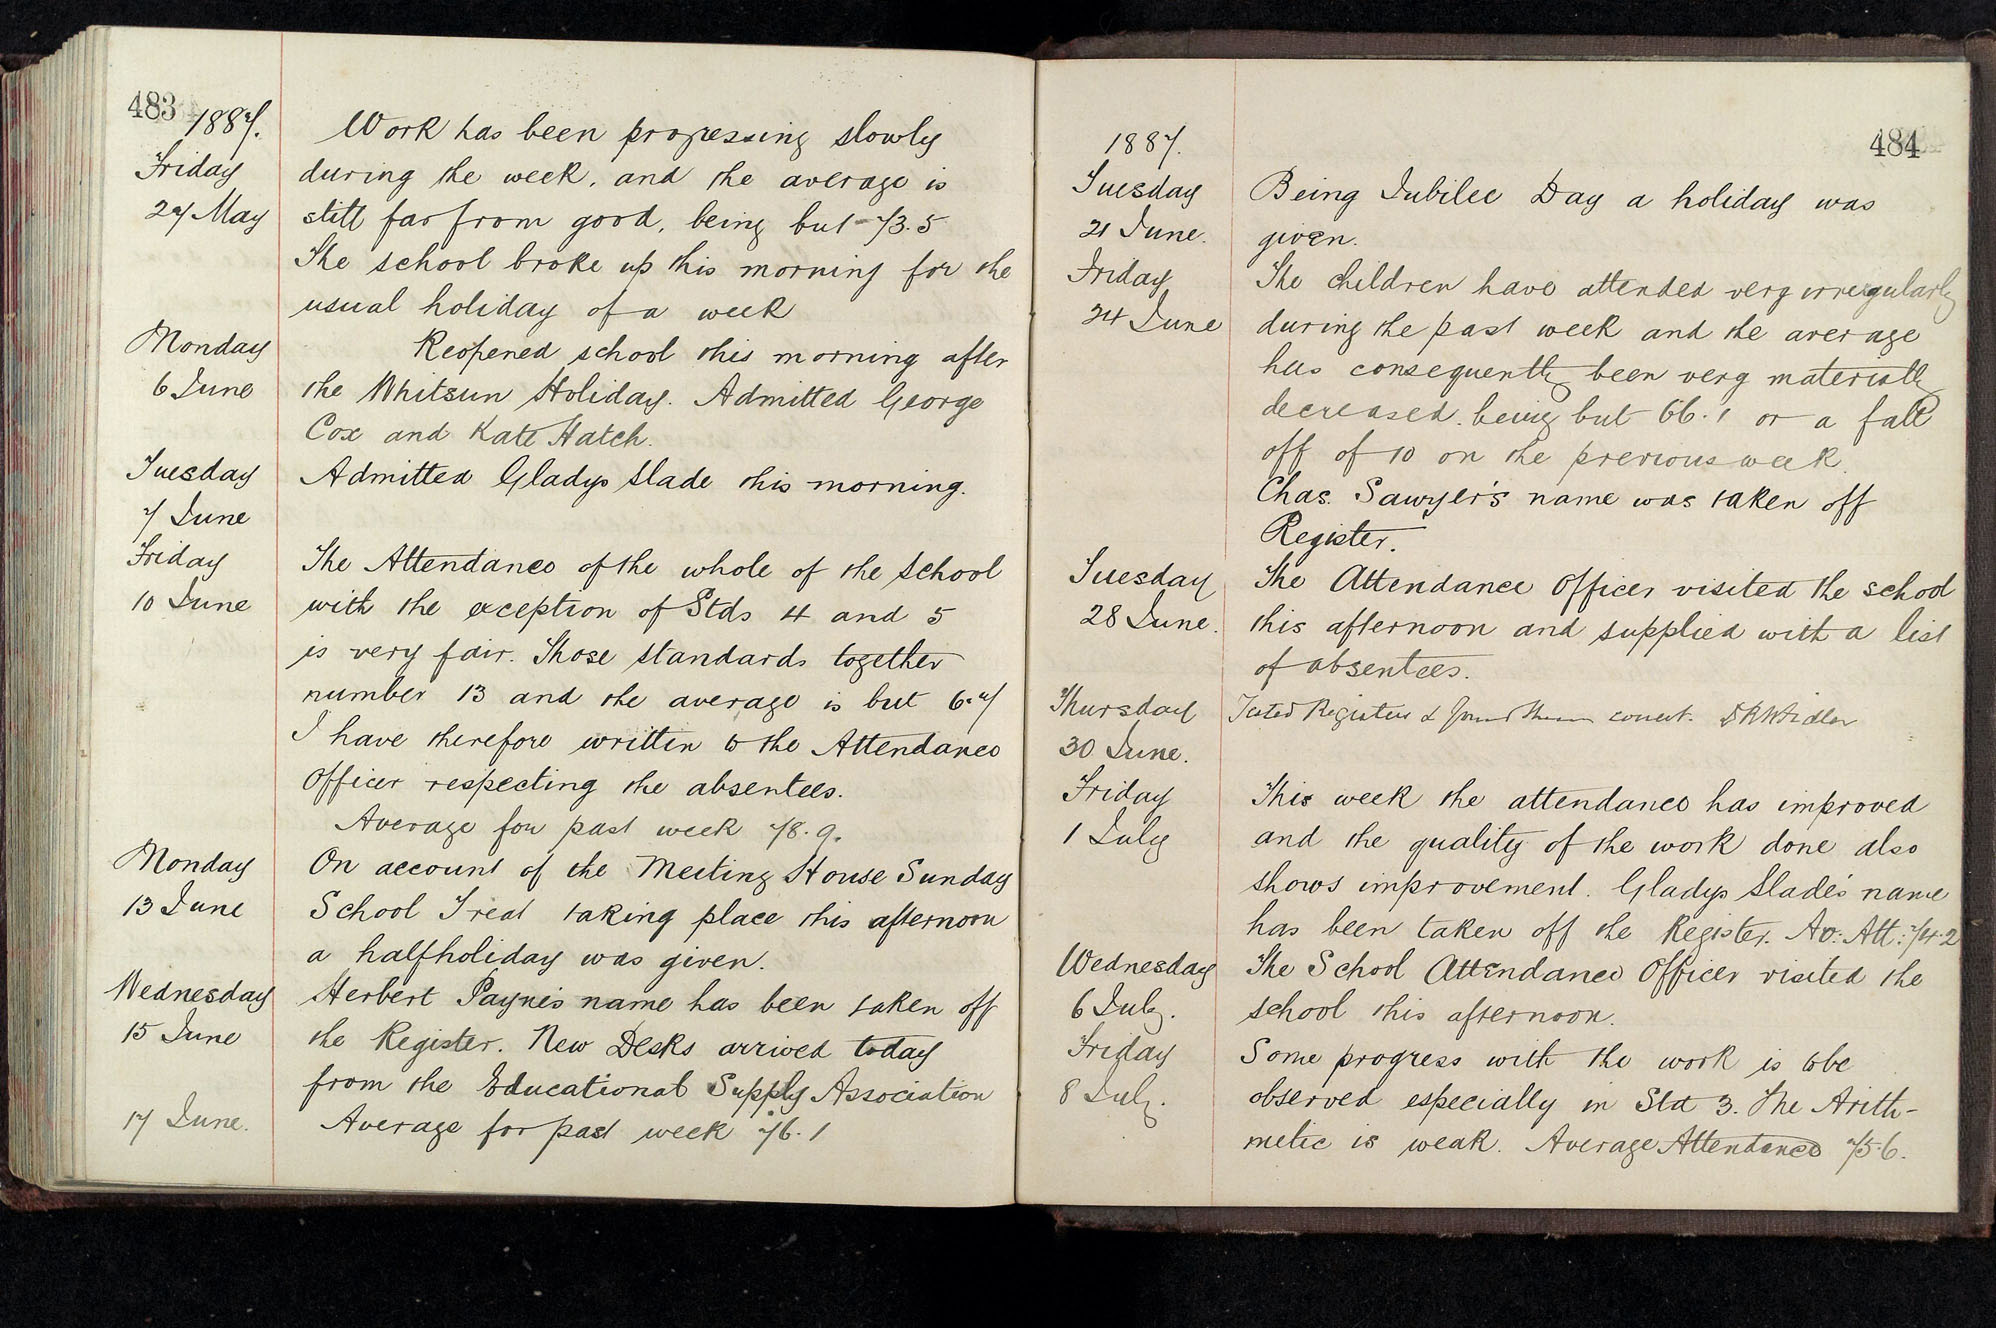 483 1887.
Friday
27 May
Work has been progressing slowly
during the week, and the average is
still far from good, being but 73.5
The school broke up this morning for the
usual holiday of a week
Monday
6 June
Reopened school this morning after
the Whitsun Holiday. Admitted George
Cox and Kate Hatch.
Tuesday
7 June
Admitted Gladys Slade this morning.
Friday
10 June
The Attendance of the whole of the School
with the exception of Stds 4 and 5
is very fair. Those standards together
number 13 and the average is but 6.7
I have therefore written to the Attendance
Officer respecting the absentees.
Average for past week 78.9.
Monday
13 June
On account of the Meeting House Sunday
School Treat taking place this afternoon
a halfholiday was given.
Wednesday
15 June
Herbert Payne's name has been taken off
the Register. New Desks arrived today
from the Educational Supply Association
17 June.
Average for past week 76.1
484
1887.
Tuesday
21 June.
Being Jubilee Day a holiday was
given.
Friday
24 June
The children have attended very irregularly
during the past week and the average
has consequently been very materially
decreased. being but 66.1 or a fall
off of 10 on the previous week.
Chas. Sawyer's name was taken off
Register.
Tuesday
28 June.
The Attendance Officer visited the school
this afternoon and supplied with a list
of absentees.
Thursday
30 June.
Tested Registers & found them correct.
Friday
1 July
This week the attendance has improved
and the quality of the work done also
shows improvement. Gladys Slade's name
has been taken off the Register. Av: Att: 74.2
Wednesday
6 July.
The School Attendance Officer visited the
school this afternoon.
Friday
8 July.
Some progress with the work is to be
observed especially in Std 3. The Arith-
metic is weak. Average Attendance 75.6.